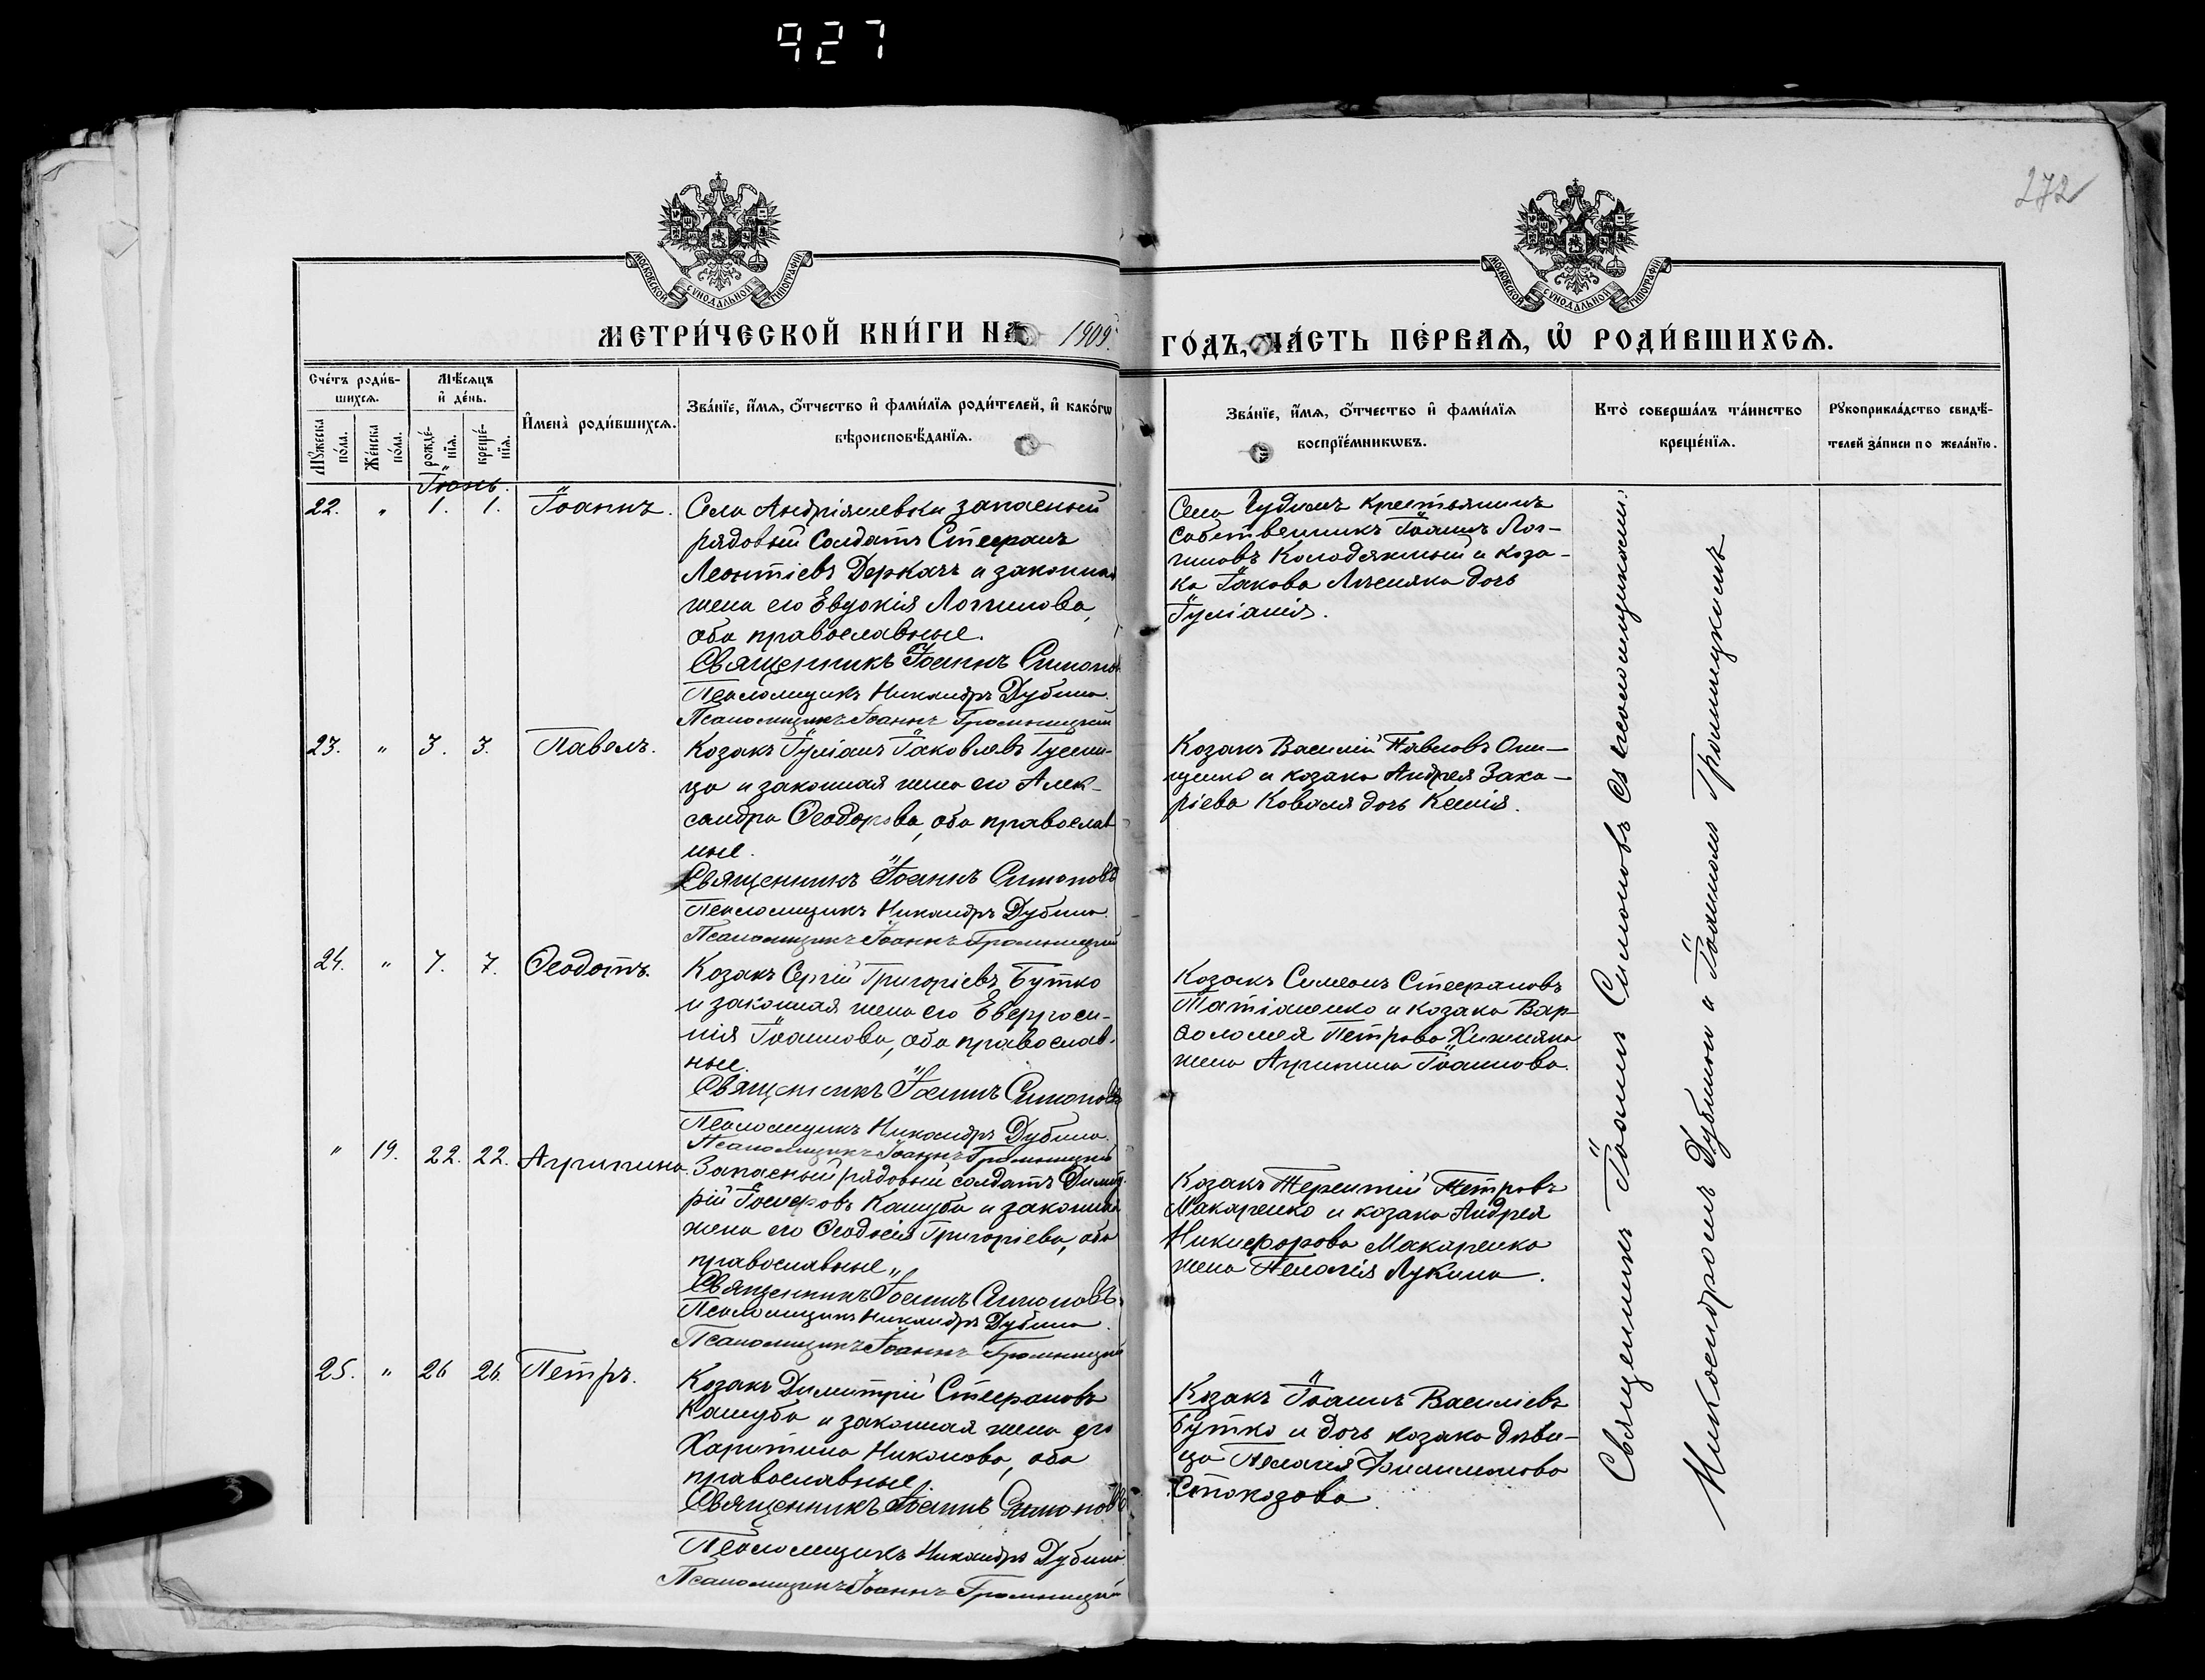 927
272
МОСКОВСКОЙ СУНОДАЛЬНОЙ ТИПОГРАФІИ
МОСКОВСКОЙ СУНОДАЛЬНОЙ ТИПОГРАФІИ
МЕТРИ́ЧЕСКОЙ КНИ́ГИ НА 1909.
ГО́ДЪ, ЧА́СТЬ ПЕ́РВАѦ, Ѡ҆ РОДИ́ВШИХСѦ.
Сче́тъ роди́в-
шихсѧ.
Мꙋ́жеска по́ла.
Же́нска по́ла.
Мѣ́сѧцъ
и҆ де́нь.
рожде́-нїѧ.
креще́-нїѧ.
И҆мена̀ роди́вшихсѧ.
Зва́нїе, и҆́мѧ, ѻ҆́тчество и҆ фами́лїѧ роди́телей, и҆ како́гѡ
вѣроисповѣ́данїѧ.
Зва́нїе, и҆́мѧ, ѻ҆́тчество и҆ фами́лїѧ
воспрїе́мникѡвъ.
Кто̀ соверша́лъ та́инство
креще́нїѧ.
Рꙋкоприкла́дство свидѣ́-
телей за́писи по жела́нїю.
Іюнь.
22. " 1. 1. Іоаннъ.
Села Андріяшевки запасный
рядовый солдатъ Стефанъ
Леонтіевъ Деркачъ и законная
жена его Евдокія Логгинова,
оба православные.
Священникъ Іоаннъ Симоновъ
Псаломщикъ Никандръ Дубина.
Псаломщикъ Іоаннъ Громницкій
Села Гудимъ крестьянинъ
собственникъ Іоаннъ Лог-
гиновъ Колодяжный и коза-
ка Іакова дочь
Іуліанія.
23. " 3. 3. Павелъ.
Козакъ Іуліанъ Іаковлевъ
и законная жена его Алек-
сандра Ѳеодорова, оба православ
ные.
Священникъ Іоаннъ Симоновъ
Псаломщикъ Никандръ Дубина.
Псаломщикъ Іоаннъ Громницкій
Козакъ Василій Павловъ Они-
щенко и козака Андрея Заха-
ріева Коваля дочь Ксенія.
24. " 7. 7. Ѳеодотъ.
Козакъ Сергій Григоріевъ Бутко
и законная жена его Евфроси-
нія Іоаннова, оба православ-
ные.
Священникъ Іоаннъ Симоновъ
Псаломщикъ Никандръ Дубина.
Псаломщикъ Іоаннъ Громницкій
Козакъ Симеонъ Стефановъ
Татіаненко и козака Вар-
ѳоломея Петрова Хижняка
жена Агрипина Іоаннова.
" 19. 22. 22. Агрипина.
Запасный рядовый солдатъ Димит
рій Іосифовъ Кашуба и законная
жена его Ѳеодосія Григоріева, оба
православные.
Священникъ Іоаннъ Симоновъ.
Псаломщикъ Никандръ Дубина.
Псаломщикъ Іоаннъ Громницкій
Козакъ Терентій Петровъ
Макаренко и козака Андрея
Никифорова Макаренка
жена Пелагія Лукина.
25. " 26 26. Петръ.
Козакъ Димитрій Стефановъ
Кашуба и законная жена его
Харитина Никонова, оба
православные.
Священникъ Іоаннъ Симоновъ
Псаломщикъ Никандръ Дубина.
Псаломщикъ Іоаннъ Громницкій
Козакъ Іоаннъ Василіевъ
Бутко и дочь козака дѣви-
ца Пелагія Филимонова
Стокозова.
Священникъ Іоаннъ Симоновъ съ псаломщиками:
Никандромъ Дубиною и Іоанномъ Громницкимъ